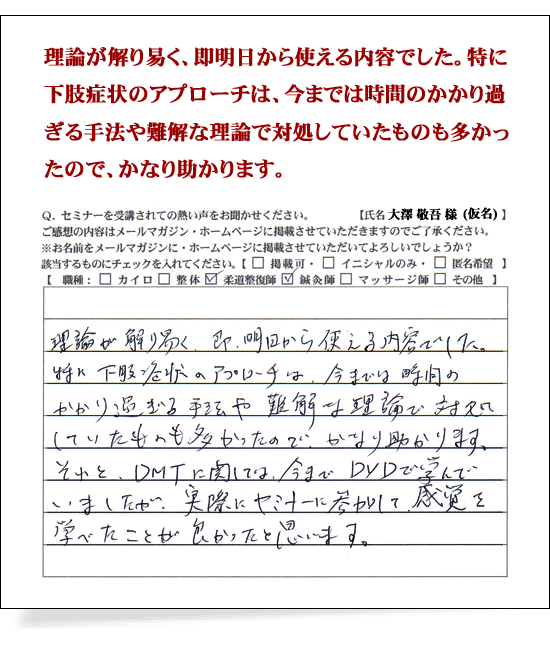 理論が解り易く、即明日から使える内容でした。特に
下肢症状のアプローチは、今までは時間のかかり過
ぎる手法や難解な理論で対処していたものも多かっ
たので、かなり助かります。
Q. セミナーを受講されての熱い声をお聞かせください。 【氏名 大澤 敬吾 様 (仮名) 】
ご感想の内容はメールマガジン・ホームページに掲載させていただきますのでご了承ください。
※お名前をメールマガジンに・ホームページに掲載させていただいてよろしいでしょうか？
該当するものにチェックを入れてください。【 □ 掲載可・ □ イニシャルのみ・ □ 匿名希望 】
【 職種： □ カイロ □ 整体 ☑ 柔道整復師 ☑ 鍼灸師 □ マッサージ師 □ その他 】
理論が解り易く、即、明日から使える内容でした。
特に下肢症状のアプローチは、今までは時間の
かかり過ぎる手法や難解な理論で対処
していたものも多かったので、かなり助かります。
それと、DMTに関しては、今までDVDで学んで
いましたが、実際にセミナーに参加して、感覚を
学べたことが良かったと思います。